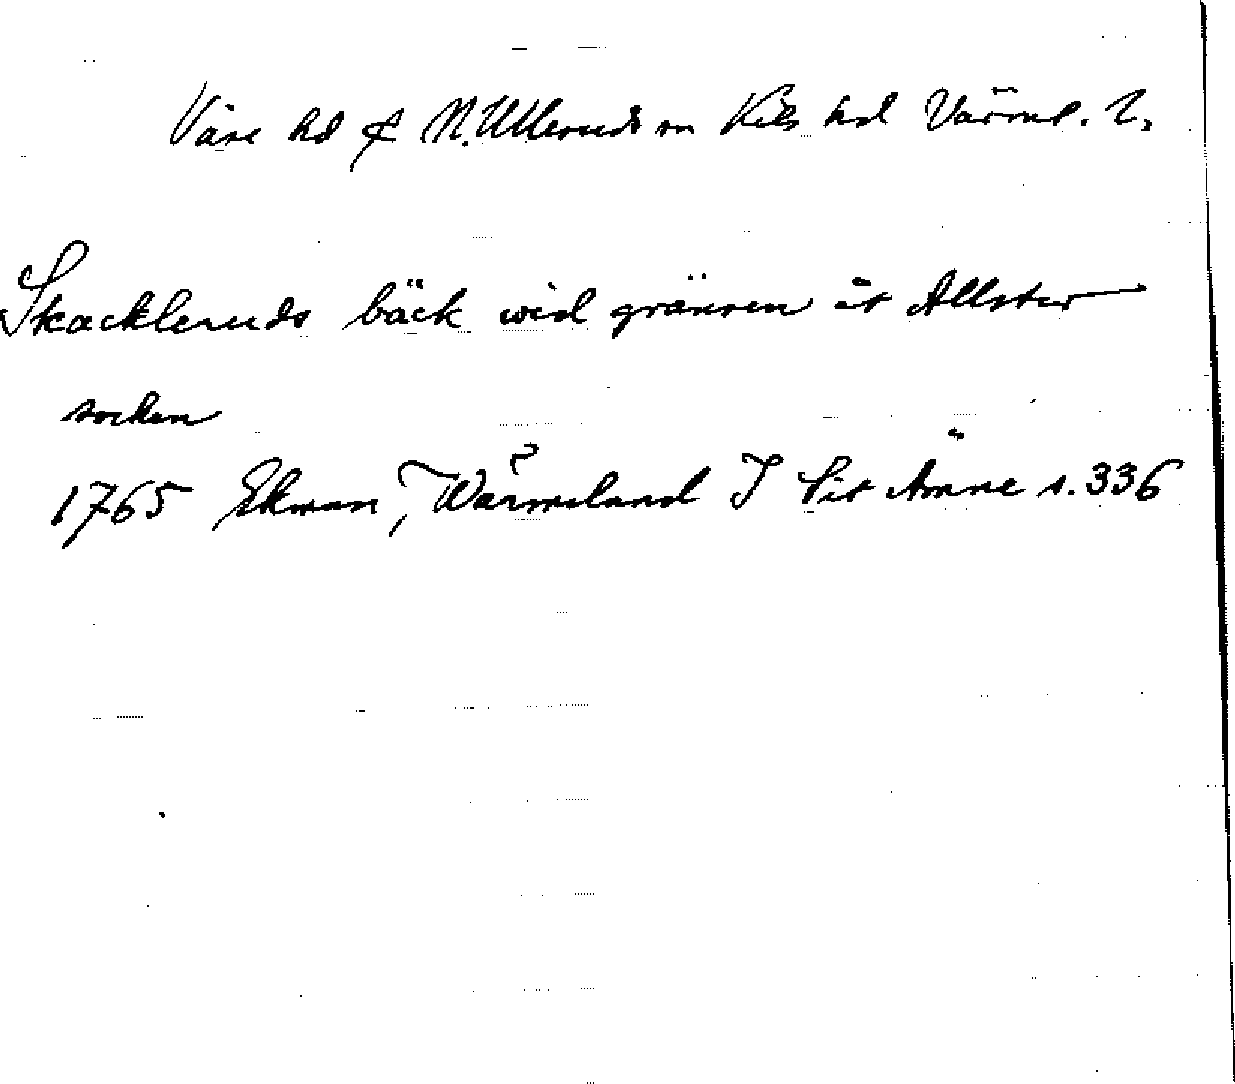 Väse hd & N. Ullerud sn Kils hd Värml. l.
Skackleruds bäck wid gränsen åt Allster
socken
1765 Ekman, Wärmeland I Sit Ämne s. 336